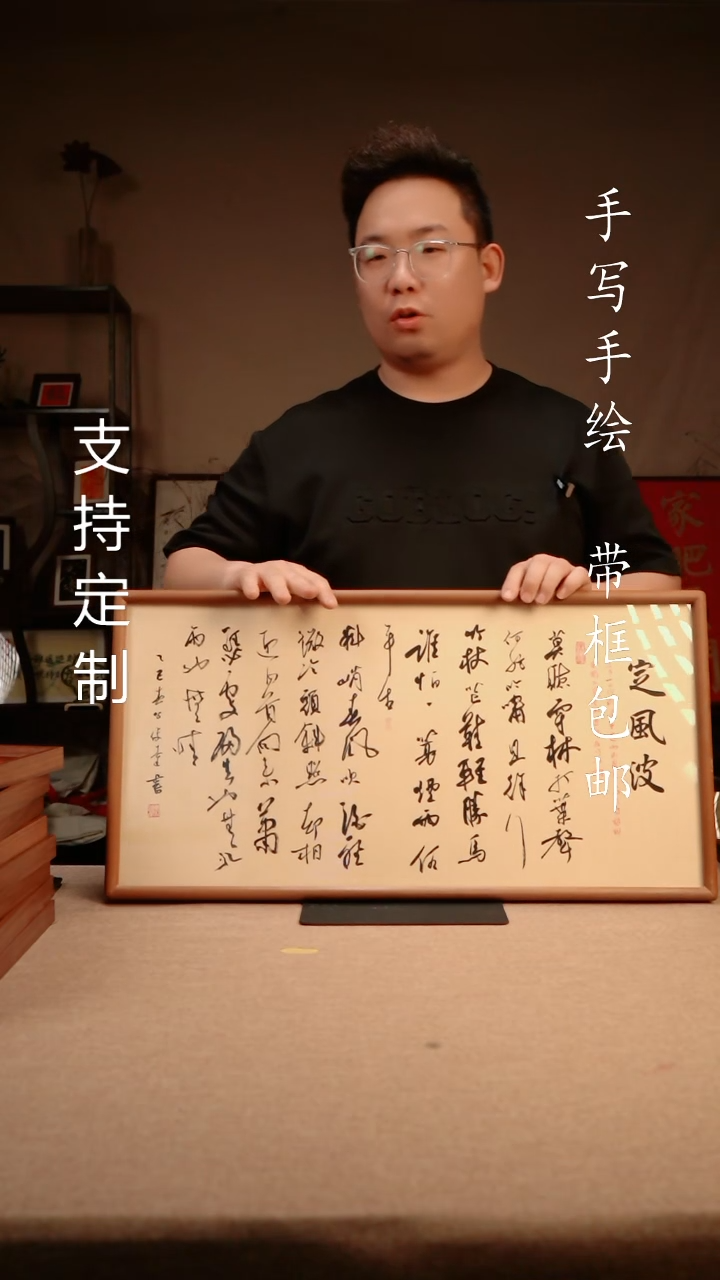 手写手绘 带框包邮
支持定制
定風波
莫聽穿林打葉聲
何妨吟嘯且徐行
竹杖芒鞋輕勝馬
誰怕一蓑煙雨任
平生
料峭春风吹酒醒
微冷頭斜照却相
迎
瑟處歸去也
雨也
乙巳春
書
家吧